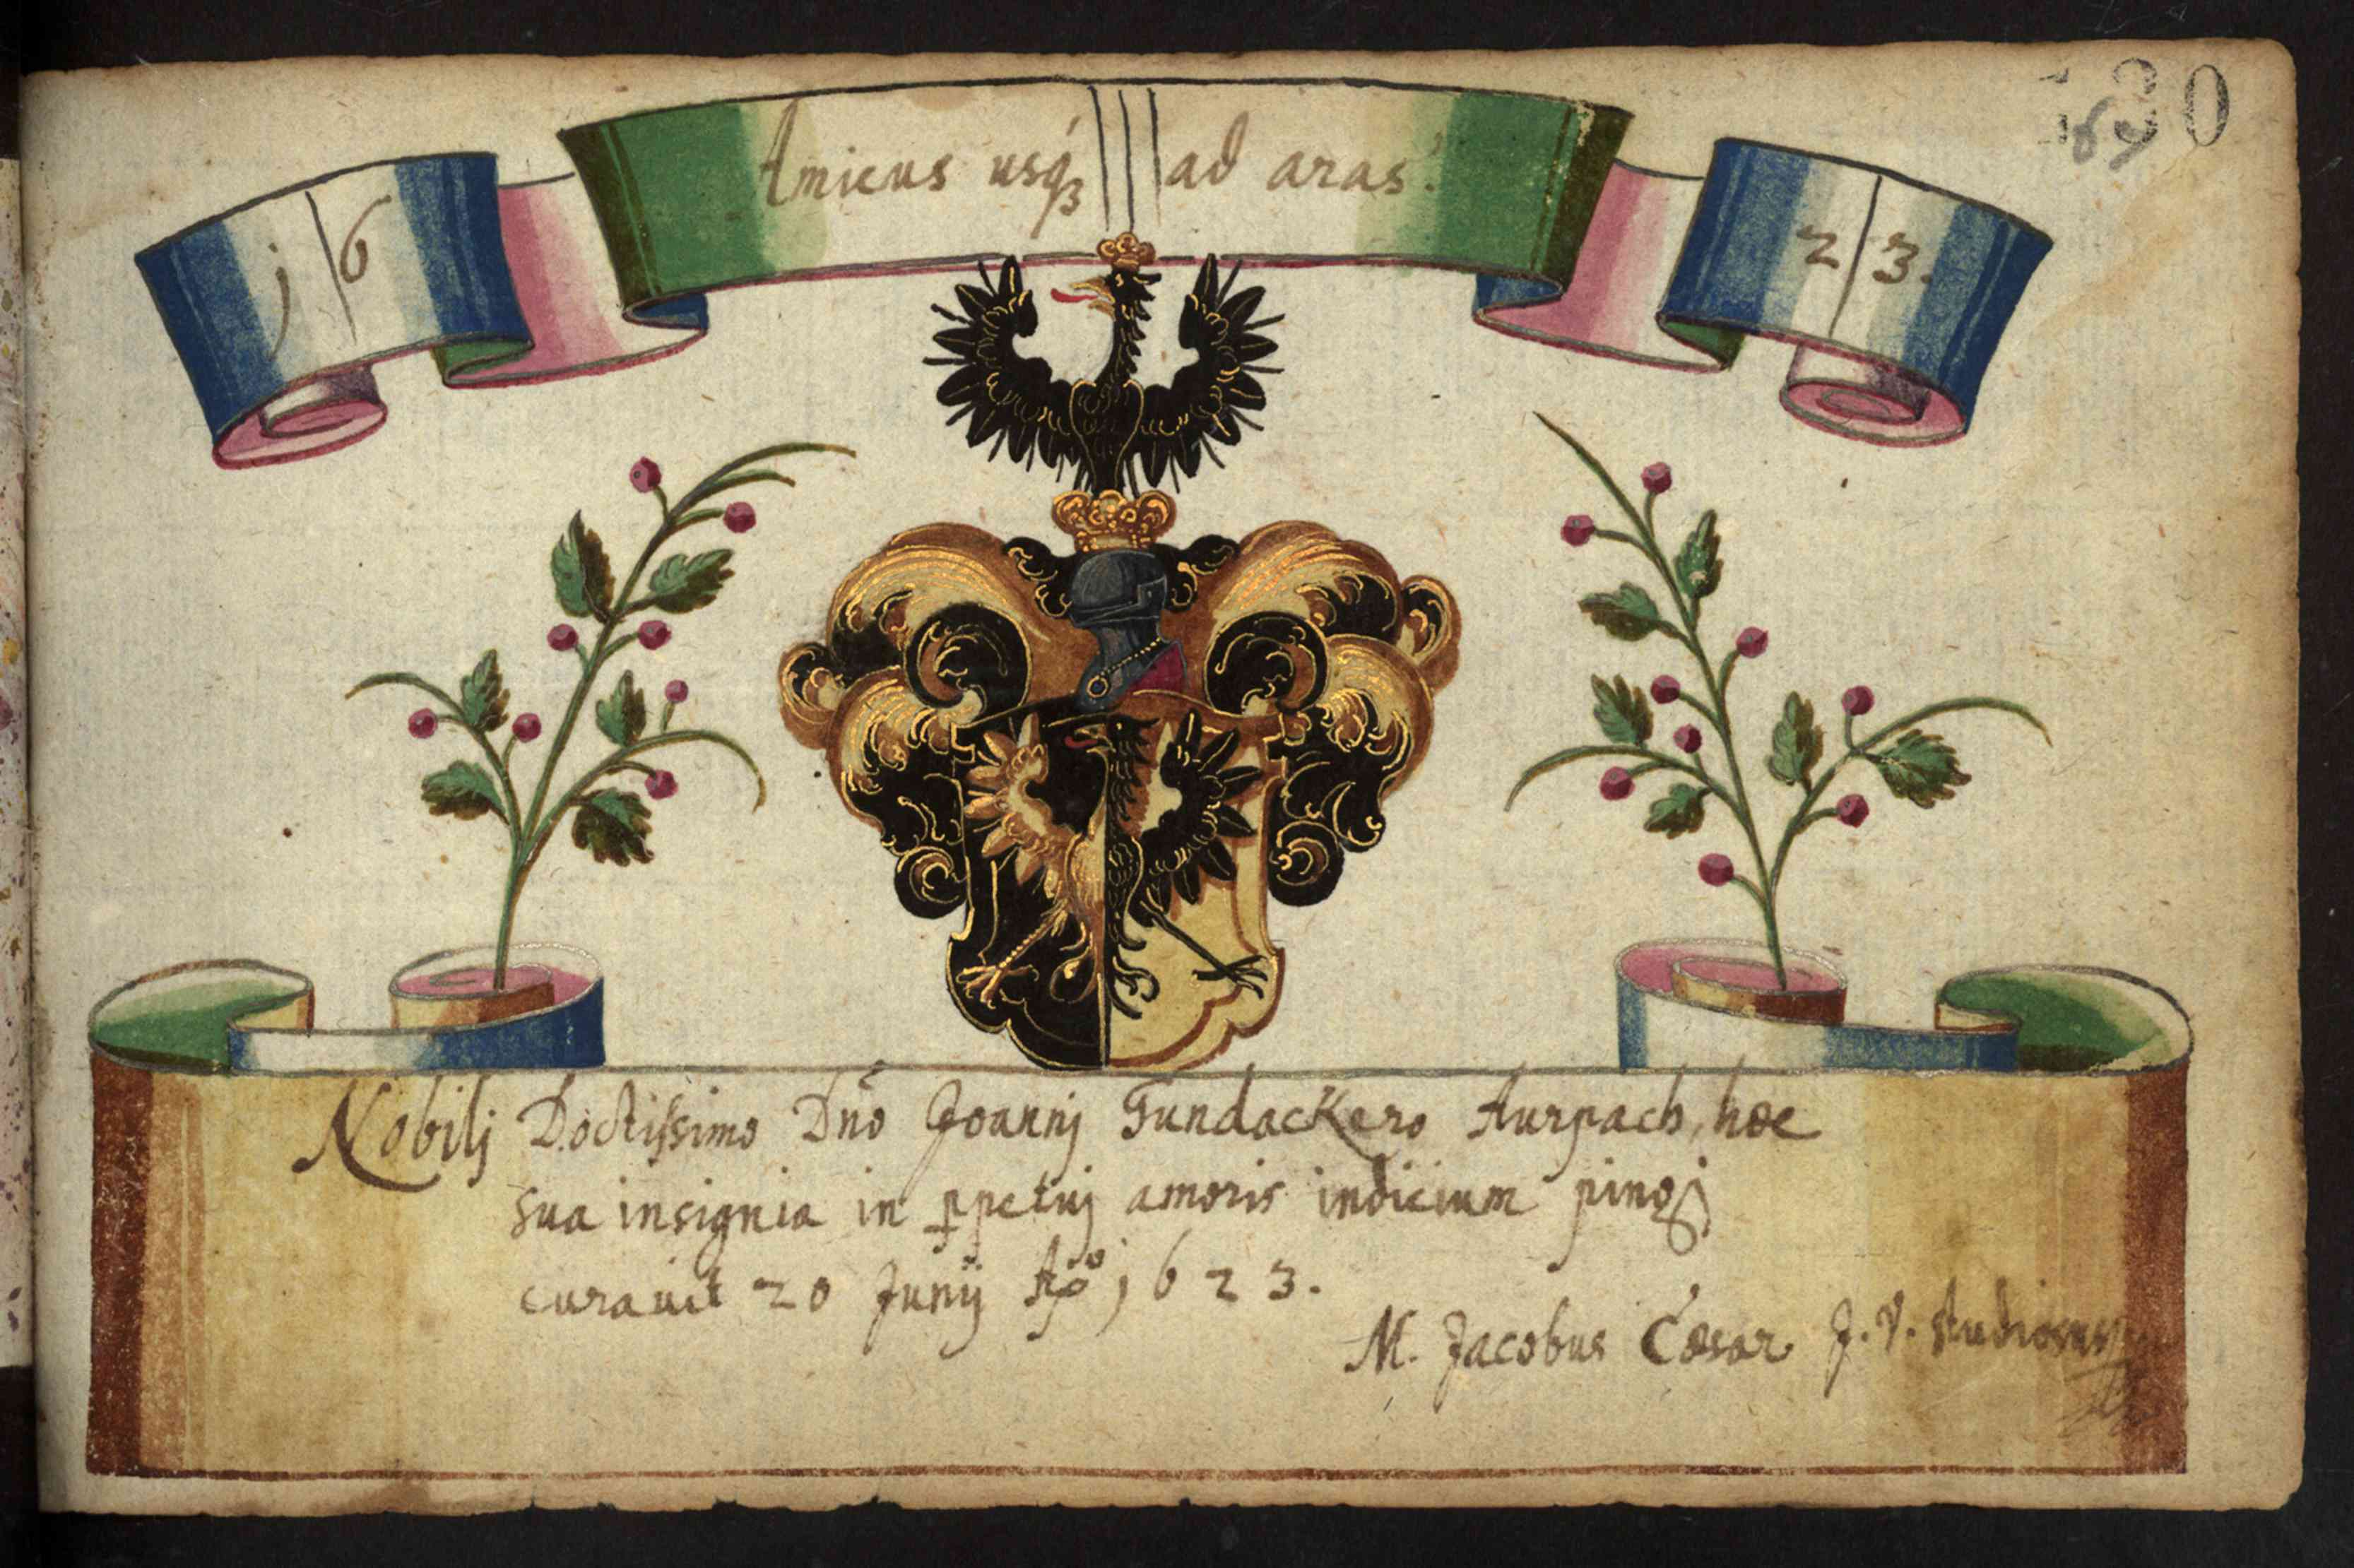 130
67
Amicus usq́ꝫ ad aras.
j6 23.
Nobilj Doctissimo Dn̄o Joannj Gundackero Aurpach, hæc
sua insignia in ꝑpetuj amoris indicium pingj
curauit 20 Junij Aō j623.
M. Jacobus Cæsar J. V. studiosus